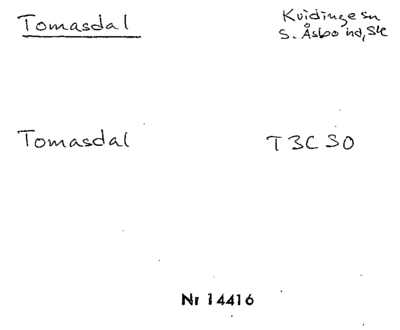 Tomasdal
Kvidinge sn
S. Åsbo hd, Sk
Tomasdal
T 3C 30
Nr 14416